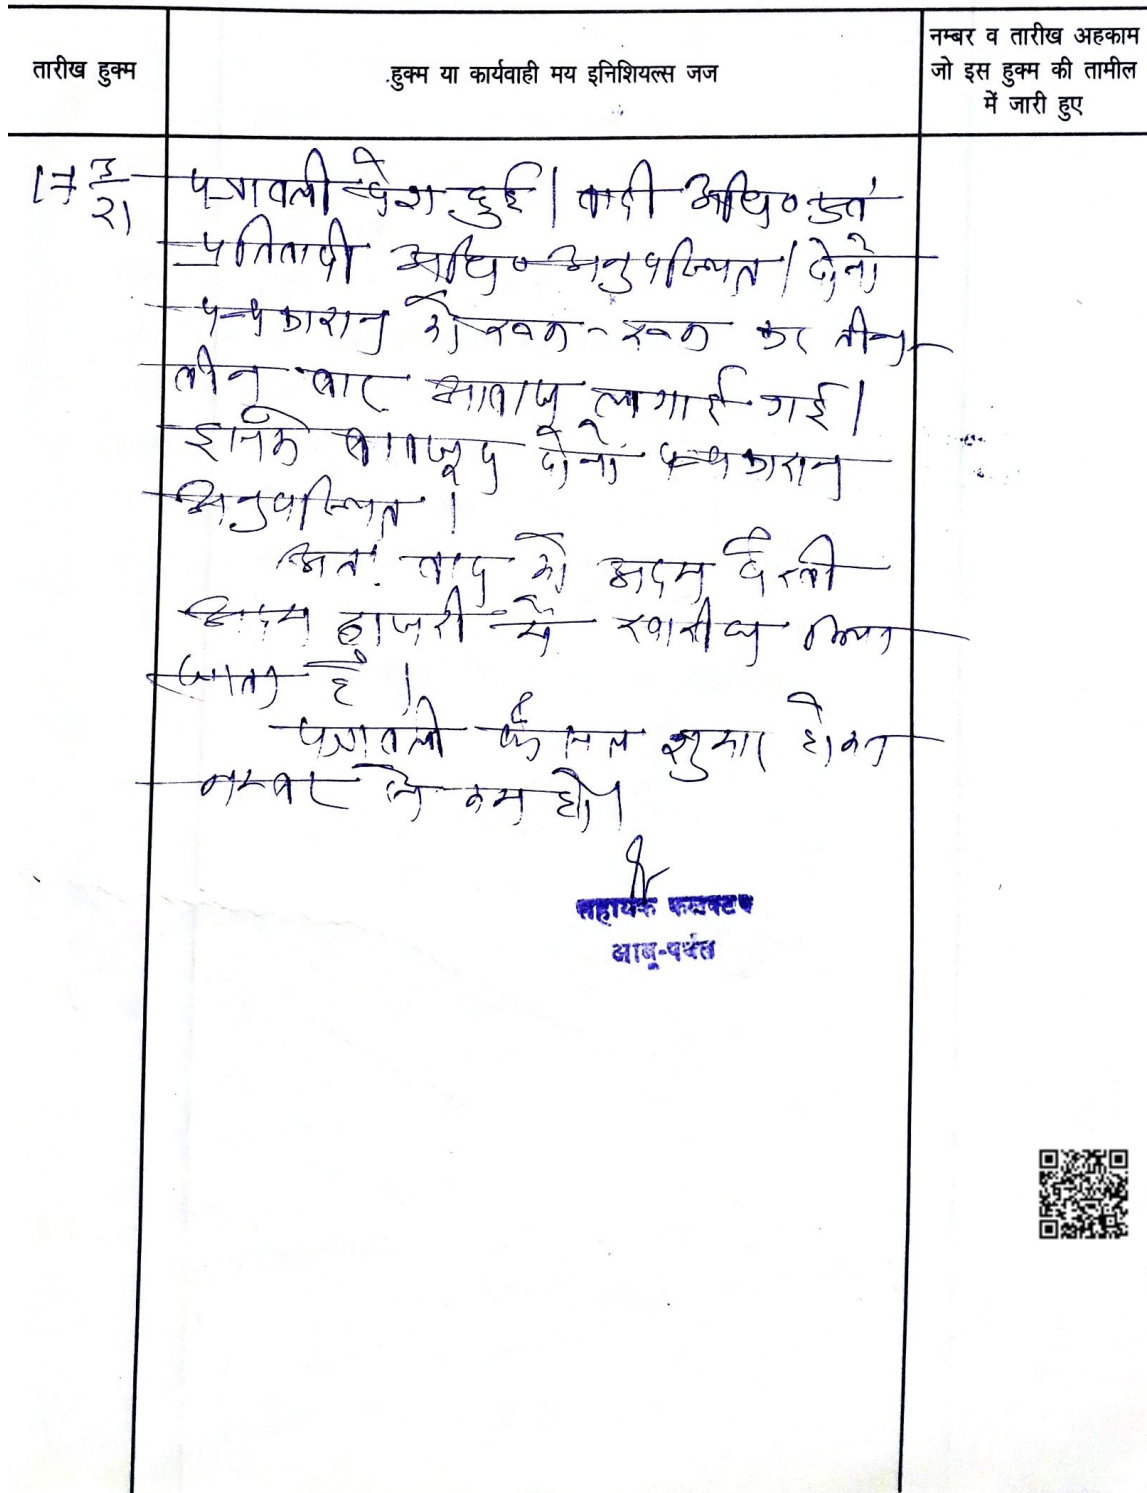 तारीख हुक्म
हुक्म या कार्यवाही मय इनिशियल्स जज
नम्बर व तारीख अहकाम
जो इस हुक्म की तामील
में जारी हुए
17 3/21
पत्रावली पेश हुई। वादी अधि०
प्रतिवादी अधि० अनुपस्थित। दोनो
पक्षकारान को रूक-रूक कर तीन
तीन बार आवाज लगाई गई।
इसके बावजूद दोनो पक्षकारान
अनुपस्थित।
अतः वाद को अदम पैरवी
अदम हाजरी मे खारीज किया
जाता है।
पत्रावली फैसल शुमार होकर
नम्बर से कम हो।
सहायक कलक्टर
आबू-पर्वत